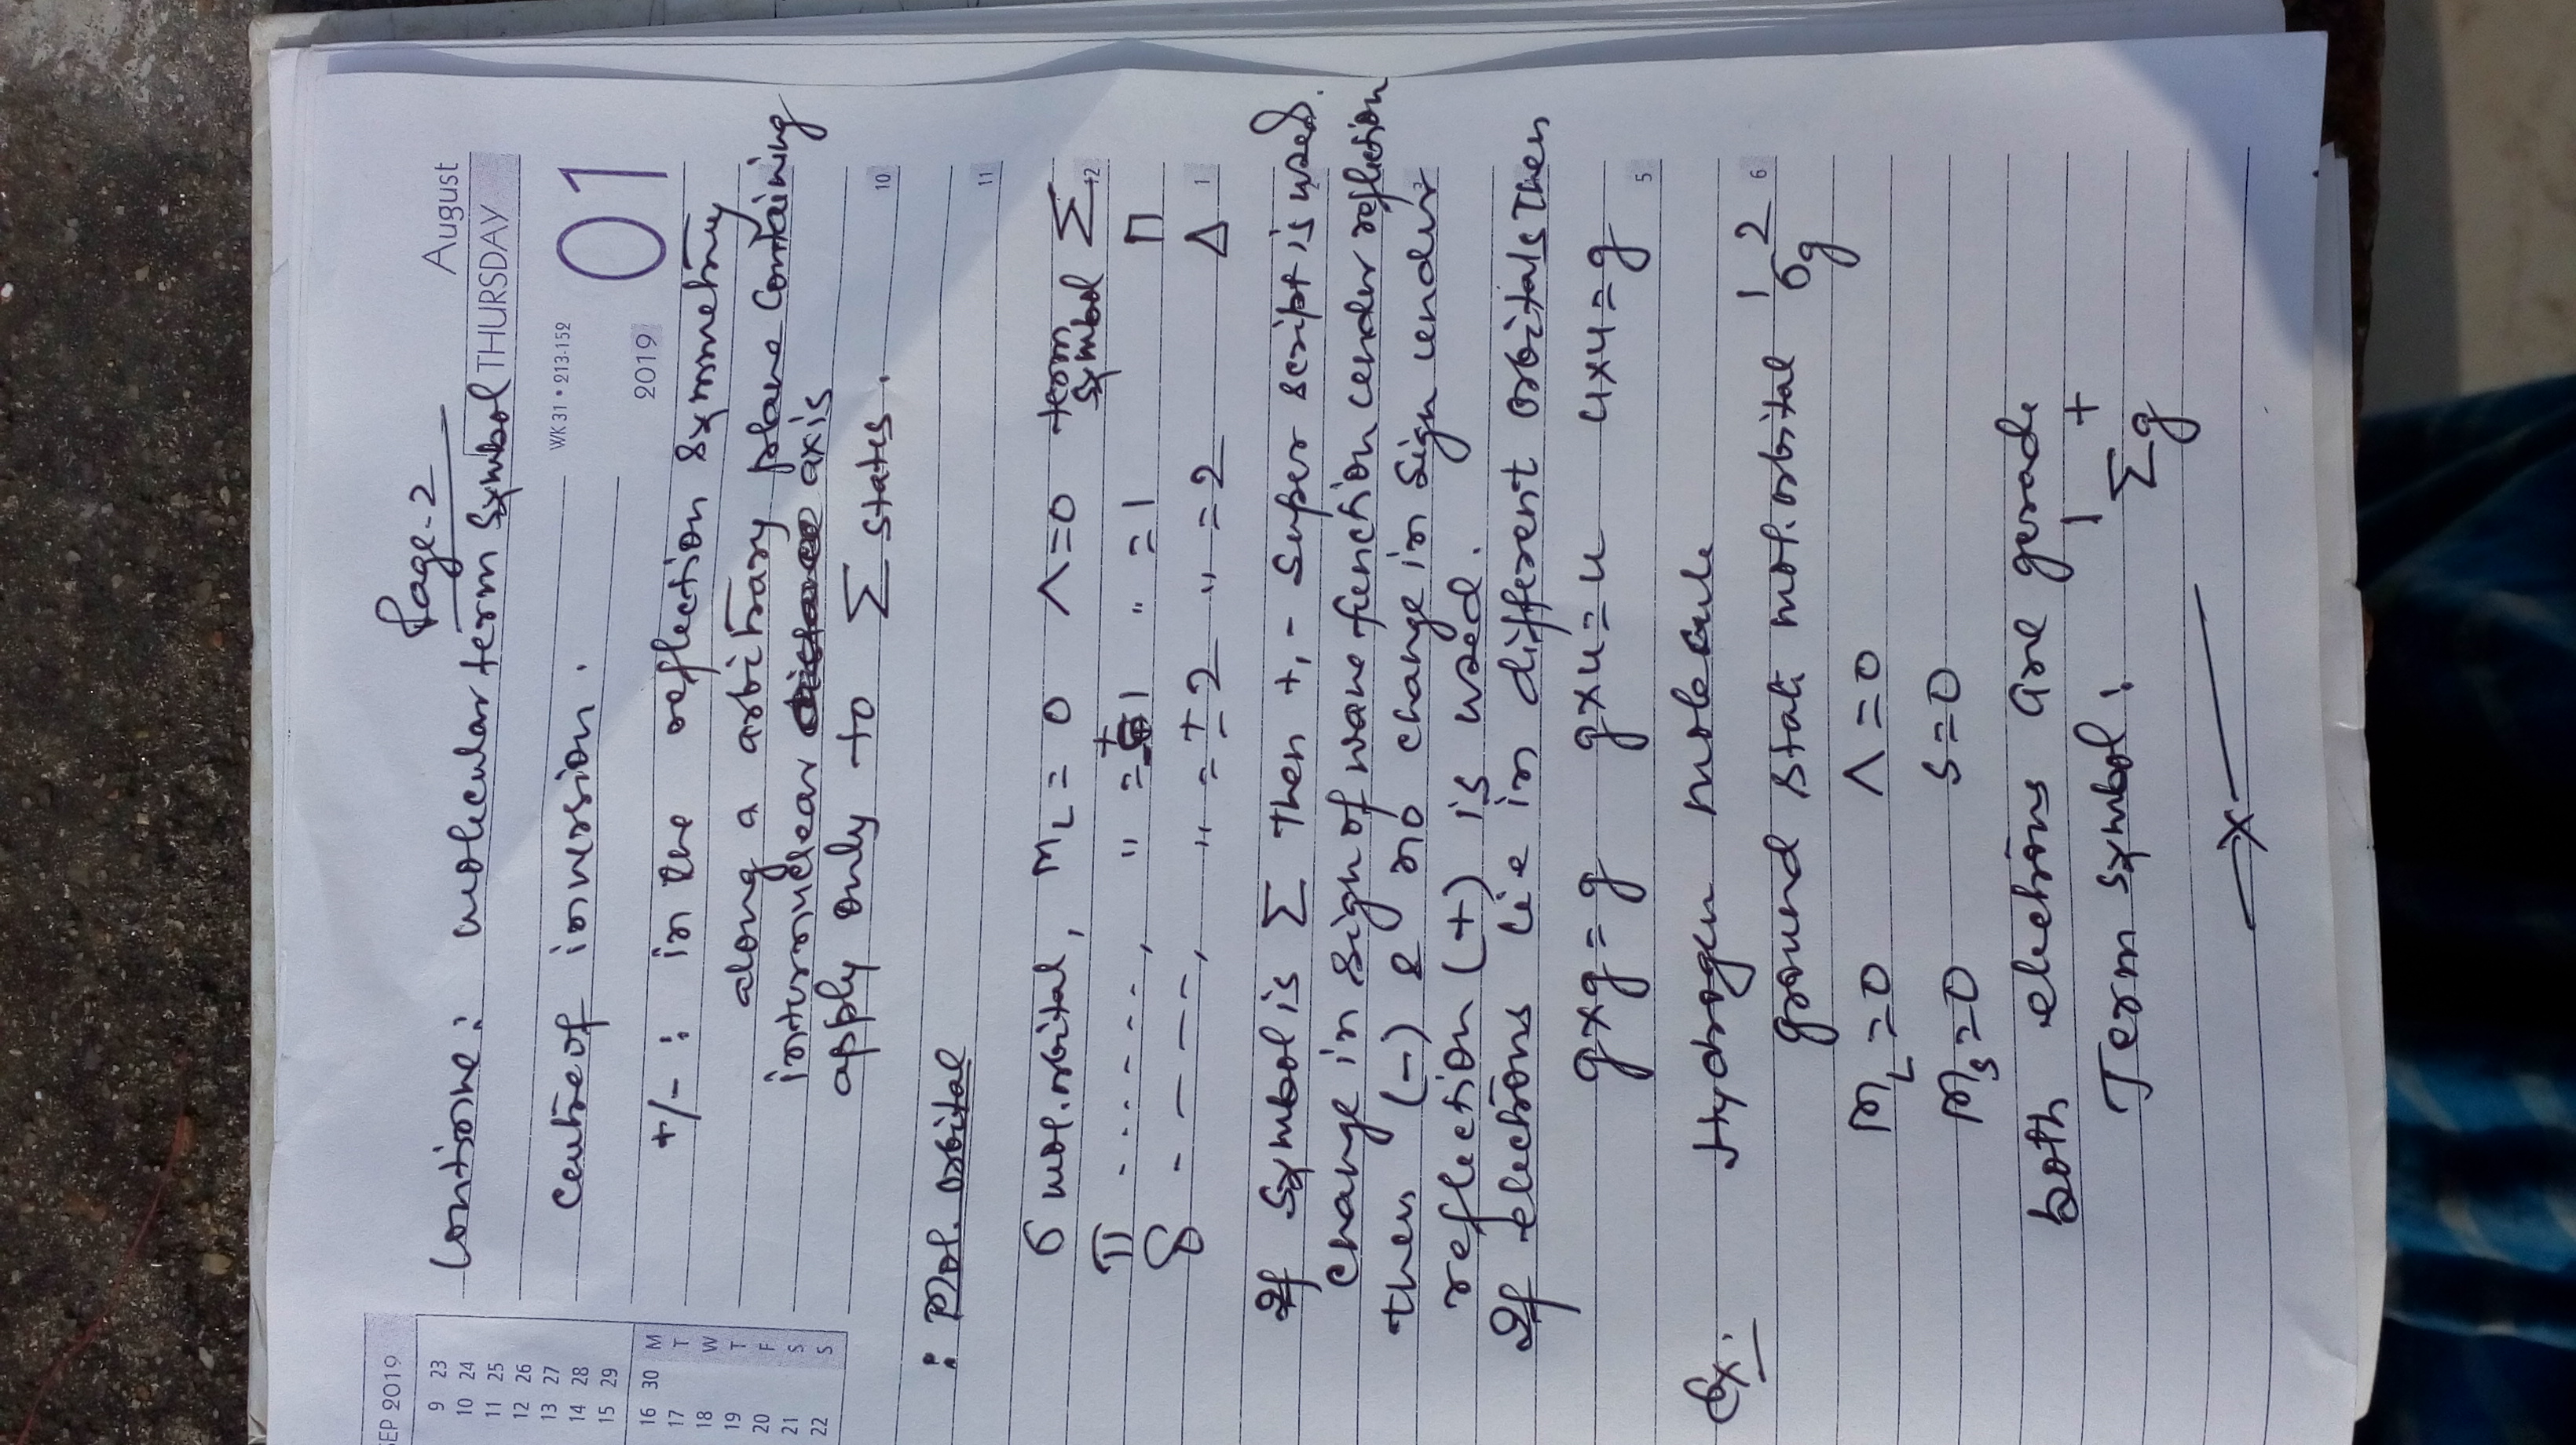 Page-2
August
Continue: molecular term symbol THURSDAY
WK 31 • 213-152
01
2019
centre of inversion.
+/- : in the reflection symmetry
along a arbitrary plane containing
internuclear axis
apply only to Σ states.
10
: Mol. orbital
11
σ mol. orbital, ML = 0 Λ = 0 term symbol Σ
12
π - - - - - -, " = ±1 " = 1 Π
δ - - - - -, " = ±2 " = 2 Δ
1
If symbol is Σ then +, - super script is used.
Change in sign of wave function under reflection
then (-) & no change in sign under
reflection (+) is used.
If electrons lie in different orbitals then
g×g = g g×u = u u×u = g
5
Ex. Hydrogen molecule
6
ground state mol. orbital 1σg²
ML = 0 Λ = 0
Ms = 0 S = 0
both electrons are gerade
Term symbol: ¹Σg⁺
x
SEP 2019
9 23
10 24
11 25
12 26
13 27
14 28
15 29
16 30 M
17 T
18 W
19 T
20 F
21 S
22 S